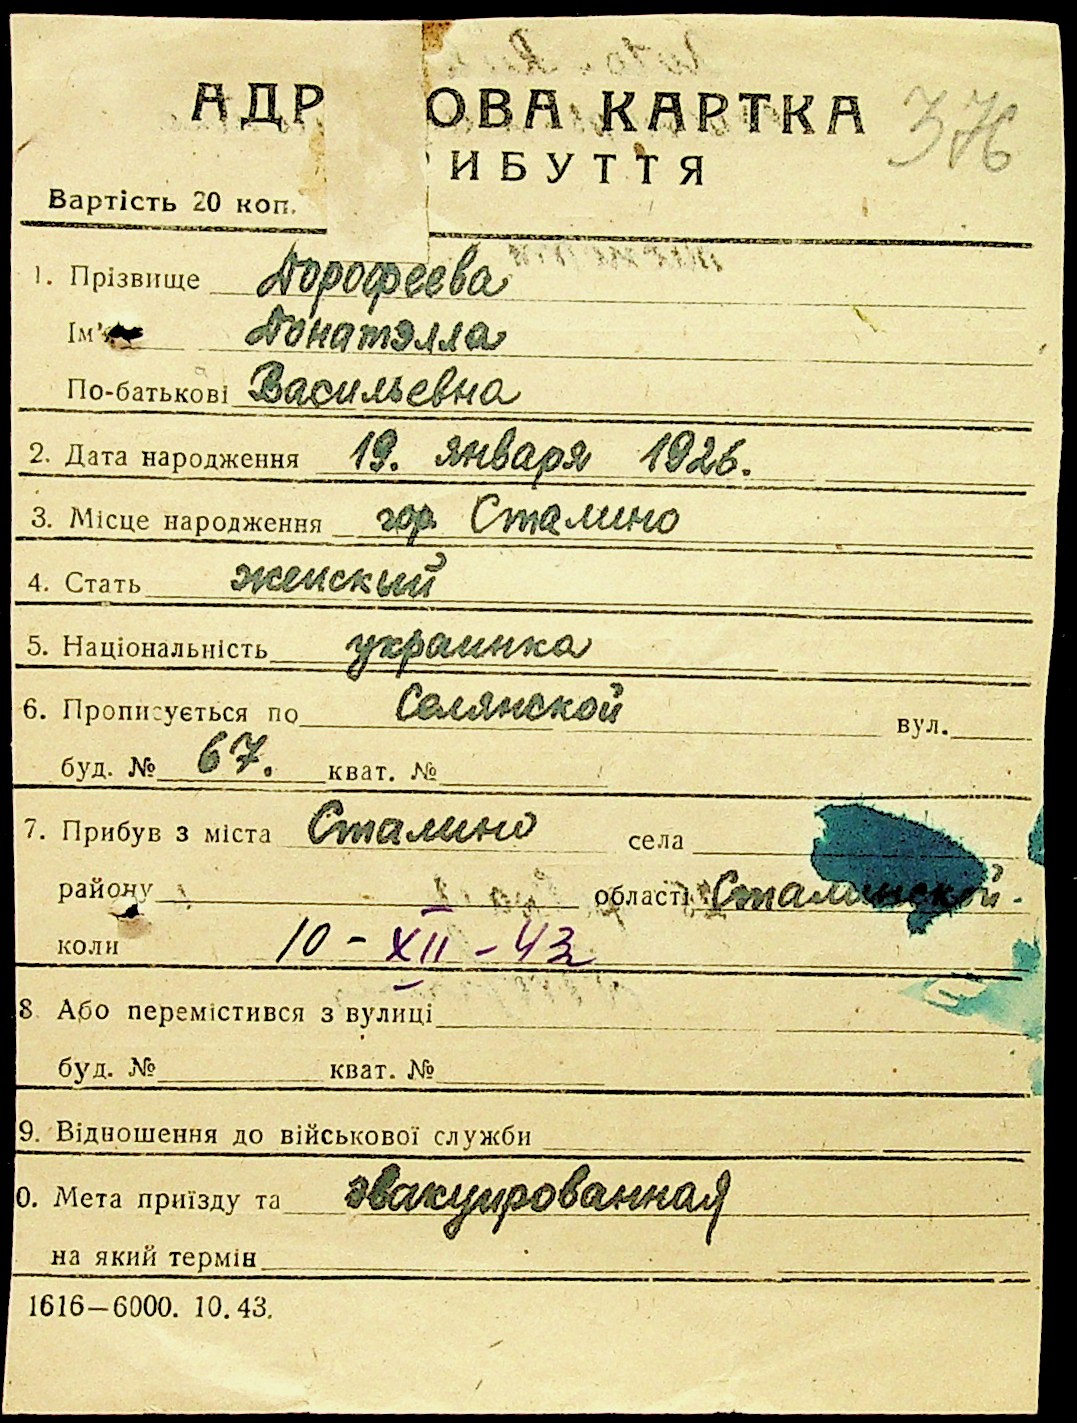 АДР ОВА КАРТКА
376
РИБУТТЯ
Вартість 20 коп.
1. Прізвище Дорофеева
Ім'я Донатэлла
По-батькові Васильевна
2. Дата народження 19. января 1926.
3. Місце народження гор. Сталино
4. Стать женский
5. Національність украинка
6. Прописується по Селянской вул.
буд. № 67. кват. №
7. Прибув з міста Сталино села
району області Сталинской.
коли 10-XII-43
8 Або перемістився з вулиці
буд. № кват. №
9. Відношення до військової служби
0. Мета приїзду та эвакуированная
на який термін
1616—6000. 10.43.